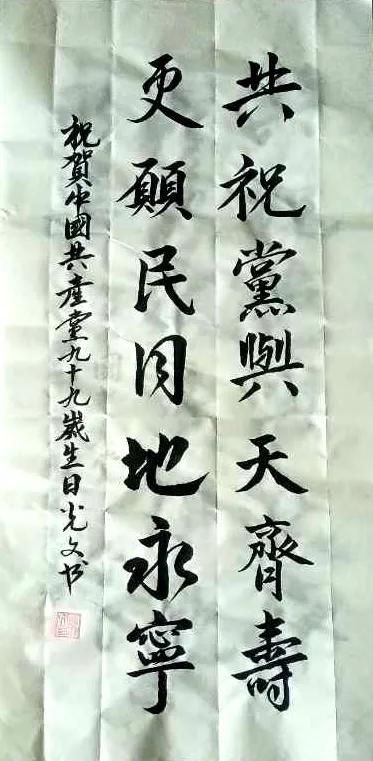 共祝黨與天齊壽
更願民同地永寧
祝賀中國共產黨九十九歲生日光文书